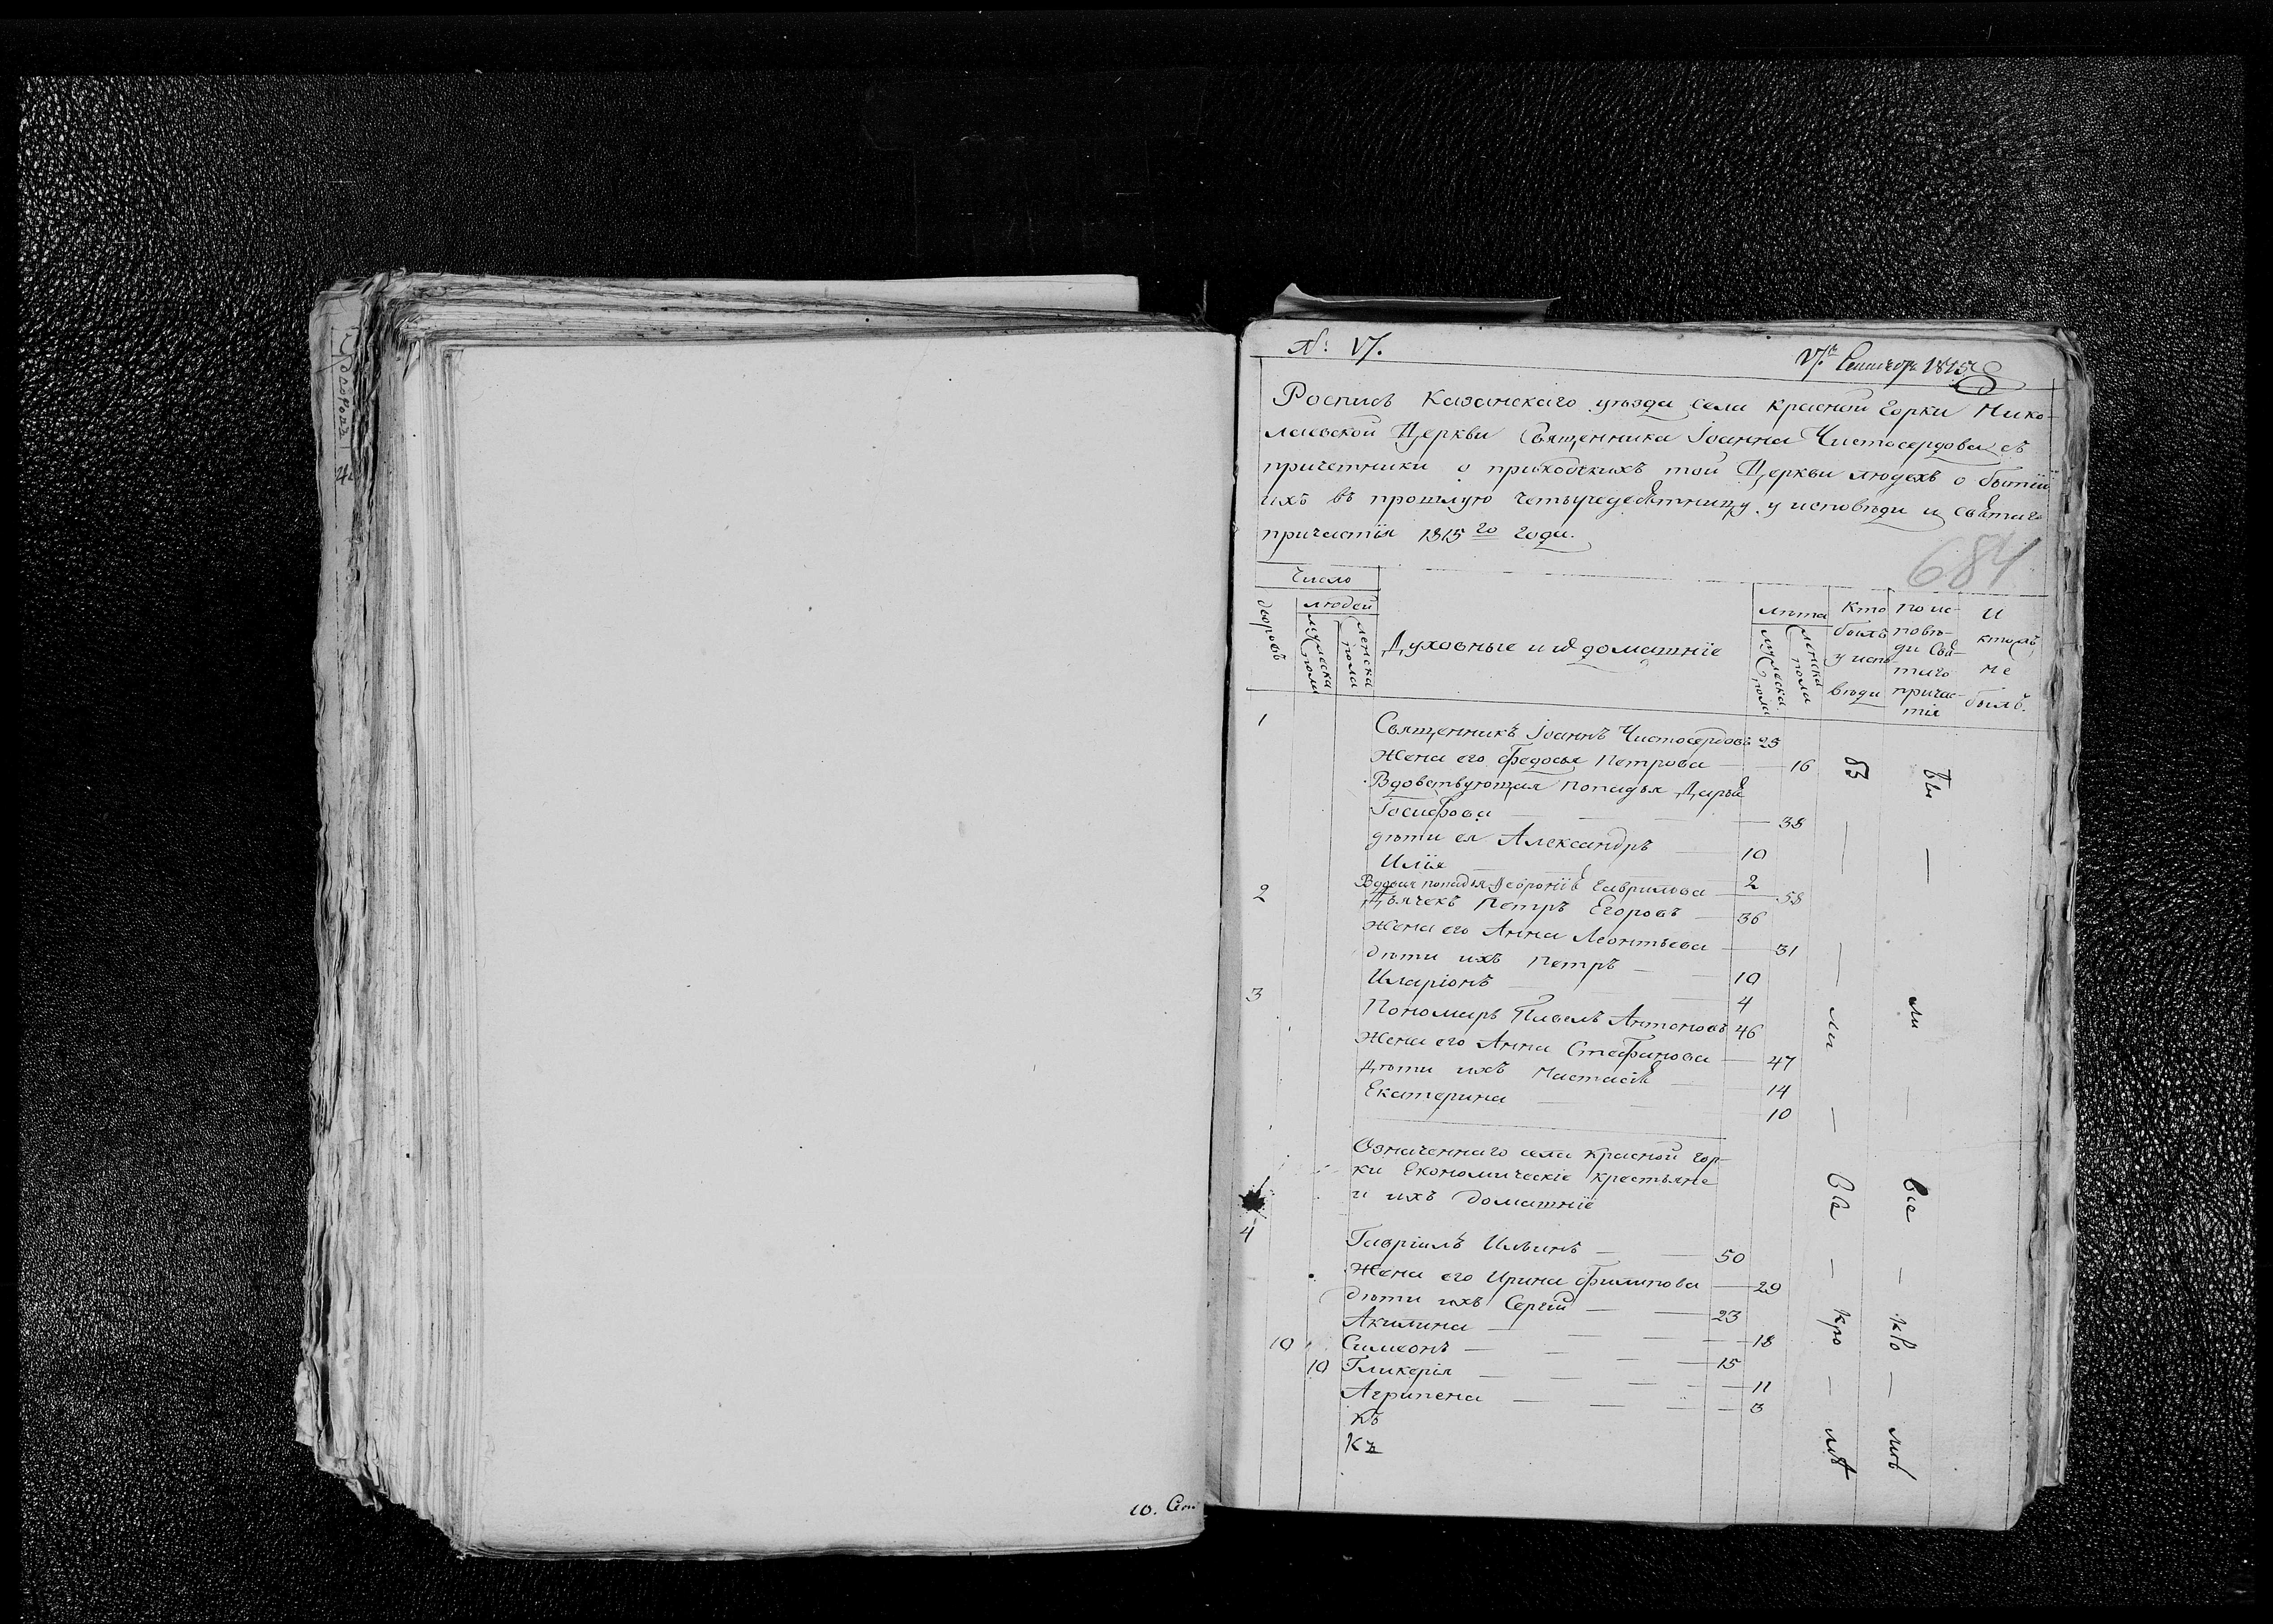 № 17.
Сентября 1815
Роспись Казанскаго уѣзда села Красной Горки Нико-
лаевской Церкви Священника Іоанна Чистосердова съ
причетники о приходскихъ той Церкви людехъ о бытіи
ихъ въ прошлую четыредесятницу у исповѣди и святаго
причастія 1815го года.
684
Число
дворовъ
людей
мужеска пола
женска пола
Духовные и их домашніе
лѣта
мужеска пола
женска пола
Кто былъ у исповѣди
по исповѣди святаго причастія
и кто не былъ.
1 Священникъ Іоаннъ Чистосердовъ 25
Жена его Федосья Петрова — 16
Вдовствующая попадья Дарья
Іосифова — — — — 38
дѣти ея Александръ — 10
Илія — 2
Вдовая попадья Гаврилова — 58
2 Дьячекъ Петръ Егоровъ — 36
Жена его Анна Леонтьева — 31
дѣти ихъ Петръ — — 10
Иларіонъ — — 4
3 Пономарь Павелъ Антоновъ 46
Жена его Анна Стефанова — 47
Дѣти ихъ Настасія — 14
Екатерина — — 10
Означеннаго села Красной Гор-
ки Економическіе крестьяне
и ихъ домашніе
4 Гавріилъ Ильинъ — — 50
Жена его Ирина Филипова — 29
дѣти ихъ Сергій — — 23
Акилина — — — — 18
10 Симеонъ — — — — 15
10 Гликерія — — — — 11
Агрипена — — — — 3
къ
Къ
бы — ли — вы — кро — мѣ
ли — вы — кро — мѣ
10.